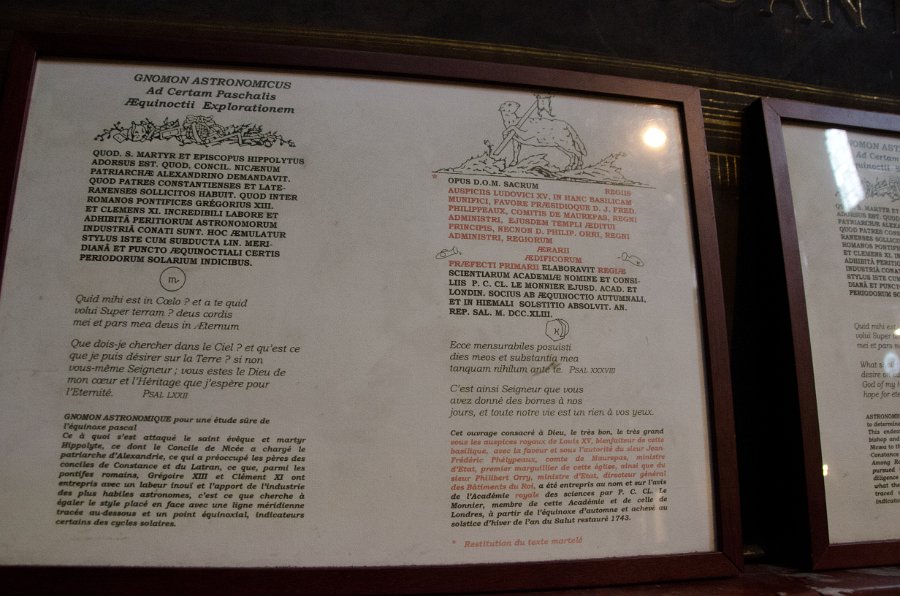 GNOMON ASTRONOMICUS
Ad Certam Paschalis
Æquinoctii Explorationem
QUOD. S. MARTYR ET EPISCOPUS HIPPOLYTUS
ADORSUS EST. QUOD. CONCIL. NICÆNUM
PATRIARCHÆ ALEXANDRINO DEMANDAVIT.
QUOD PATRES CONSTANTIENSES ET LATE-
RANENSES SOLLICITOS HABUIT. QUOD INTER
ROMANOS PONTIFICES GRÉGORIUS XIII.
ET CLEMENS XI. INCREDIBILI LABORE ET
ADHIBITÂ PERITORUM ASTRONOMORUM
INDUSTRIÂ CONATI SUNT. HOC ÆMULATUR
STYLUS ISTE CUM SUBDUCTA LIN. MERI-
DIANÂ ET PUNCTO ÆQUINOCTIALI CERTIS
PERIODORUM SOLARIUM INDICIBUS.
Quid mihi est in Cœlo ? et a te quid
volui Super terram ? deus cordis
mei et pars mea deus in Æternum
Que dois-je chercher dans le Ciel ? et qu'est ce
que je puis désirer sur la Terre ? si non
vous-même Seigneur ; vous estes le Dieu de
mon cœur et l'Héritage que j'espère pour
l'Eternité. PSAL LXXII
GNOMON ASTRONOMIQUE pour une étude sûre de
l'équinoxe pascal
Ce à quoi s'est attaqué le saint évêque et martyr
Hippolyte, ce dont le Concile de Nicée a chargé le
patriarche d'Alexandrie, ce qui a préoccupé les pères des
conciles de Constance et du Latran, ce que, parmi les
pontifes romains, Grégoire XIII et Clément XI ont
entrepris avec un labeur inouï et l'apport de l'industrie
des plus habiles astronomes, c'est ce que cherche à
égaler le style placé en face avec une ligne méridienne
tracée au-dessous et un point équinoxial, indicateurs
certains des cycles solaires.
* OPUS D.O.M. SACRUM REGIIS
AUSPICIIS LUDOVICI XV, IN HANC BASILICAM
MUNIFICI, FAVORE PRÆSIDIOQUE D. J. FRED.
PHILIPPEAUX, COMITIS DE MAUREPAS, REGNI
ADMINISTRI, EJUSDEM TEMPLI ÆDITUI
PRINCIPIS, NECNON D. PHILIP. ORRI, REGNI
ADMINISTRI, REGIORUM
ÆRARII
ÆDIFICORUM
PRÆFECTI PRIMARII ELABORAVIT REGIÆ
SCIENTIARUM ACADEMIÆ NOMINE ET CONSI-
LIIS P. C. CL. LE MONNIER EJUSD. ACAD. ET
LONDIN. SOCIUS AB ÆQUINOCTIO AUTUMNALI,
ET IN HIEMALI SOLSTITIO ABSOLVIT. AN.
REP. SAL. M. DCC.XLIII.
Ecce mensurabiles posuisti
dies meos et substantia mea
tanquam nihilum ante te. PSAL XXXVIII
C'est ainsi Seigneur que vous
avez donné des bornes à nos
jours, et toute notre vie est un rien à vos yeux.
Cet ouvrage consacré à Dieu, le très bon, le très grand
sous les auspices royaux de Louis XV, bienfaiteur de cette
basilique, avec la faveur et sous l'autorité du sieur Jean
Frédéric Phélypeaux, comte de Maurepas, ministre
d'Etat, premier marguillier de cette église, ainsi que du
sieur Philibert Orry, ministre d'Etat, directeur général
des Bâtiments du Roi, a été entrepris au nom et sur l'avis
de l'Académie royale des sciences par P. C. CL. Le
Monnier, membre de cette Académie et de celle de
Londres, à partir de l'équinoxe d'automne et achevé au
solstice d'hiver de l'an du Salut restauré 1743.
* Restitution du texte martelé